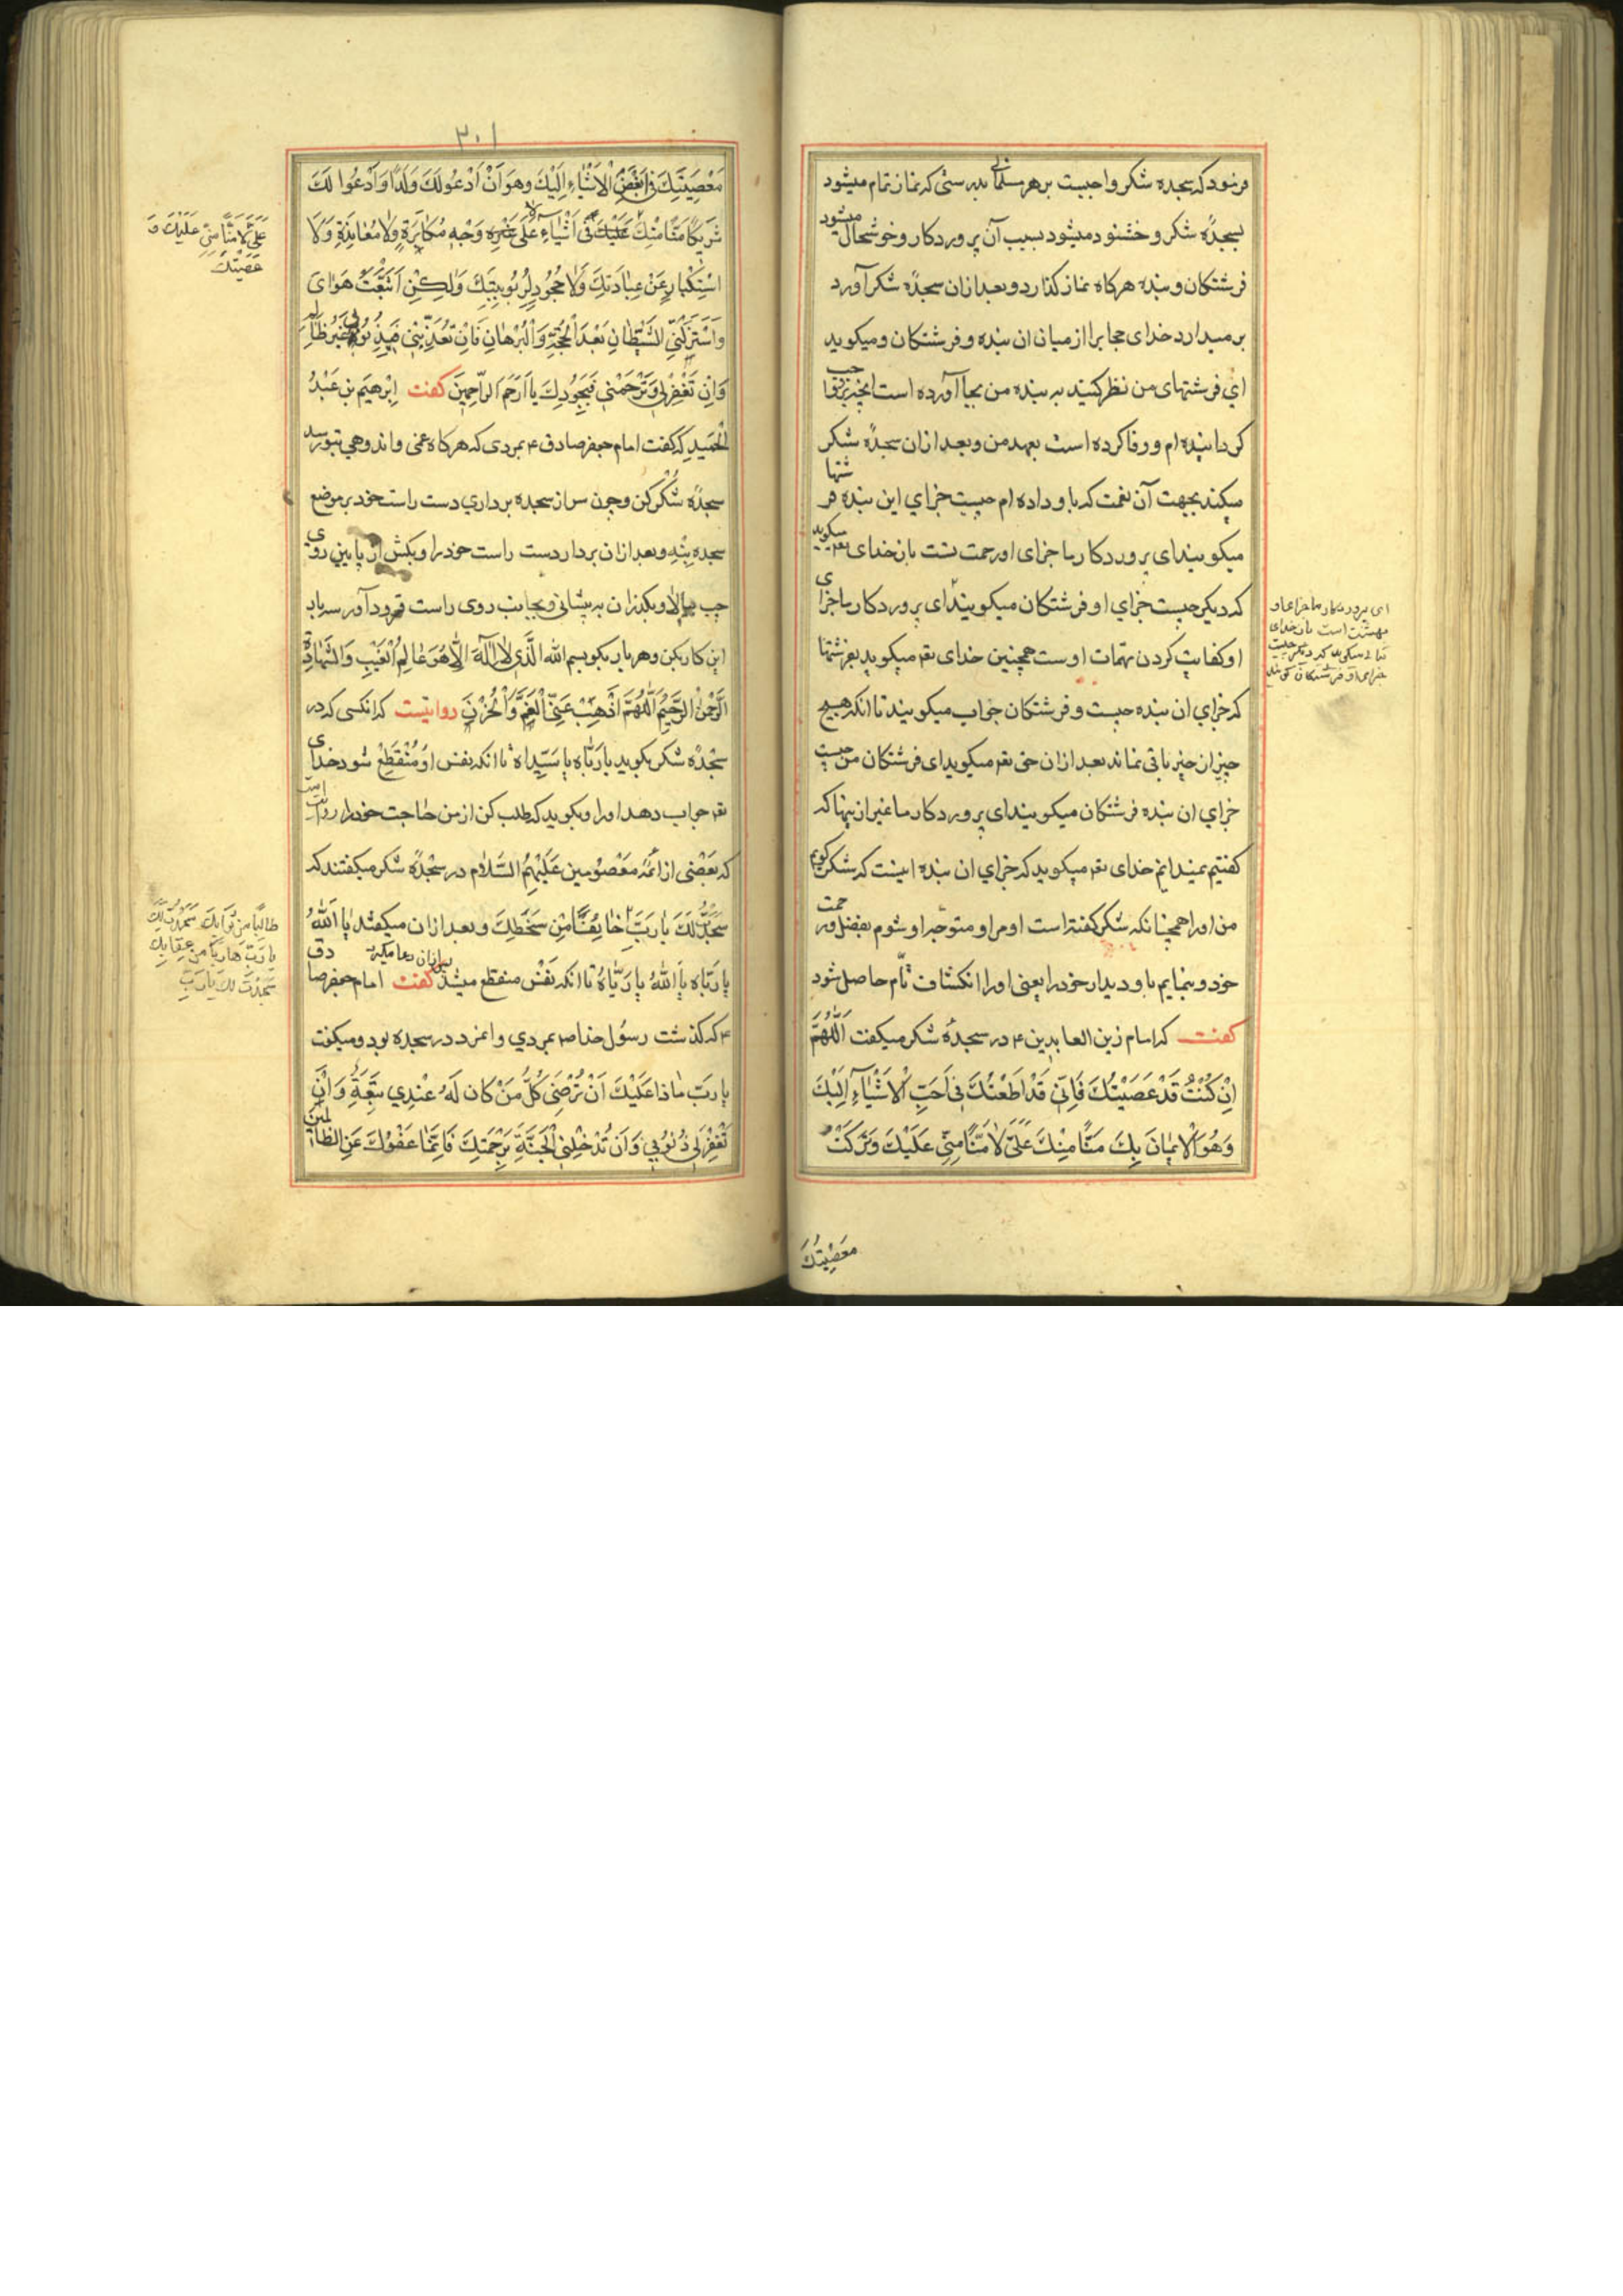 فرمود که سجده شکر واجبست بر هر مسلمانی بدرستی که نماز تمام میشود
بسجدۀ شکر و خشنود میشود بسبب آن پروردکار و خوشحال میشود
فرشتکان و بنده هرکاه نماز کذارد و بعد ازان سجدۀ شکر آورد
بر میدارد خدای حجابرا از میان ان بنده و فرشتکان و میکوید
ای فرشتهای من نظر کنید به بنده من بجا آورده است انچیزیرا
کردا بنده ام و وفا کرده است بعهد من و بعد ازان سجدۀ شکر
میکند بجهت آن نعمت که باو داده ام چیست جزای این بنده فرشتها
میکویند ای پروردکار ما جزای او رحمت تست بازخدای تعم میکوید
که دیکر چیست جزای او فرشتکان میکویند ای پروردکار ما جزای
او کفایت کردن مهمات اوست همچنین خدای تعم میکوید بفرشتها
که جزای ان بنده چیست و فرشتکان جواب میکویند تا انکه هیچ
چیز ان چیز باقی نماند بعد ازان حق تعم میکوید ای فرشتکان من چیست
جزای ان بنده فرشتکان میکویند ای پروردکار ما غیر ازینها که
کفتیم نمیدانیم خدای تعم میکوید که جزای ان بنده اینست که شکر کویم
من اورا همچنانکه شکر کفته است او مرا و متوجه او شوم بفضل و رحمت
خود و بنمایم باو دیدار خود را یعنی اورا انکشاف تام حاصل شود
کفت که امام زین العابدین ع در سجدۀ شکر میکفت اَللّهُمَّ
اِنْ کُنْتُ قَدْ عَصَیْتُكَ فَاِنّی قَدْ اَطَعْتُكَ فی اَحَبِّ الْاَشْیَآءِ اِلَیْكَ
وَهُوَ الْایمٰانُ بِكَ مَنًّا مِنْكَ عَلَیَّ لٰا مَنًّا مِنّی عَلَیْكَ وَتَرَکْتُ
معصیتك
ای پروردکار ما جزای او
بهشت است بازخدای
تعالی میکوید که دیکر چیست
جزای او فرشتکان کویند
۳۰۱
مَعْصِیَتَكَ فی اَبْغَضِ الْاَشْیٰاءِ اِلَیْكَ وَهُوَ اَنْ اَدْعُوَ لَكَ وَلَدًا وَاَدْعُوَا لَكَ
شَریکًا مَنًّا مِنْكَ عَلَیْكَ فی اَشْیٰاءِ عَلٰی غَیْرِه وَجْهِ مُکٰابَرَةٍ وَلٰا مُعٰانَدَةٍ وَلَا
اسْتِکْبٰارٍ عَنْ عِبٰادَتِكَ وَلٰا جُحُودٍ لِرُبُوبِیَّتِكَ وَلٰکِنِ اتَّبَعْتُ هَوٰایَ
وَاسْتَزَلَّنِی الشَّیْطٰانُ بَعْدَ الْحُجَّةِ وَالْبُرْهٰانِ فَاِنْ تُعَذِّبْنی فَبِذُنُوبی غَیْرُ ظٰالِمٍ
وَاِنْ تَغْفِرْ لی وَتَرْحَمْنی فَبِجُودِكَ یا اَرْحَمَ الرّاحِمینَ کفت اِبْرهیم بنِ عَبْدُ
الْحَمیدِ که کفت امام جعفر صادق ع بمردی که هرکاه غمی واندوهی بتو رسد
سجدۀ شُکْر کن وچون سر از سجده برداری دست راست خود بر موضع
سجده بنه وبعد ازان بردار دست راست خود را وبکش از پایین روی
چپ ببالا وبکذران به پیشانی وبجانب روی راست فرود آور سه بار
این کار بکن وهر بار بکو بسم الله الَّذی لٰا اِلٰهَ اِلّاٰ هُوَ عٰالِمُ الْغَیْبِ وَالشَّهٰادَةِ
الرَّحْمٰنُ الرَّحیمُ اَللّٰهُمَّ اَذْهِبْ عَنِّی الْغَمَّ وَالْحُزْنَ روایتست که انکسی که در
سَجْدۀ شکر بکوید یا رَبّٰاه یا سَیِّدٰاه تا انکه نفس او مُنْقَطِعْ شود خدای
تعم جواب دهد اورا وبکوید که طلب کن از من حاجت خود را روایت است
که بَعْضی از ائمّه مَعْصُومین عَلَیْهِمُ السَّلٰام در سَجْدۀ شکر میکفتند که
سَجَدْتُ لَكَ یٰا رَبِّ خٰائِفًا مِنْ سَخَطِكَ وبعد ازان میکفتند یٰا اَللّٰهُ
بعد ازان دعا میکرد
یا رَبّٰاه یٰا اَللّٰهُ یا رَبّٰاهُ تا انکه نَفَسْ منقطع میشد کفت امام جعفر صادق
ع که کذشت رسُول خدا ص بمردی واو در سجده بود ومیکفت
یا رَبِّ مٰاذا عَلَیْكَ اَنْ تُرْضِیَ کُلَّ مَنْ کٰانَ لَهُ عِنْدی تَبِعَةٌ وَاَنْ
تَغْفِرَ لی ذُنُوبی وَاَنْ تُدْخِلَنِی الْجَنَّةَ بِرَحْمَتِكَ فَاِنَّمٰا عَفْوُكَ عَنِ الظّالِمینَ
عَلَیَّ لٰا مَنًّا مِنّی عَلَیْكَ وَ
عَصَیْتُكَ
طالِبًا مِنْ ثَوابِكَ سَجَدْتُ لَكَ
یا رَبِّ هارِبًا مِنْ عِقابِكَ
سَجَدْتُ لَكَ یا رَبِّ